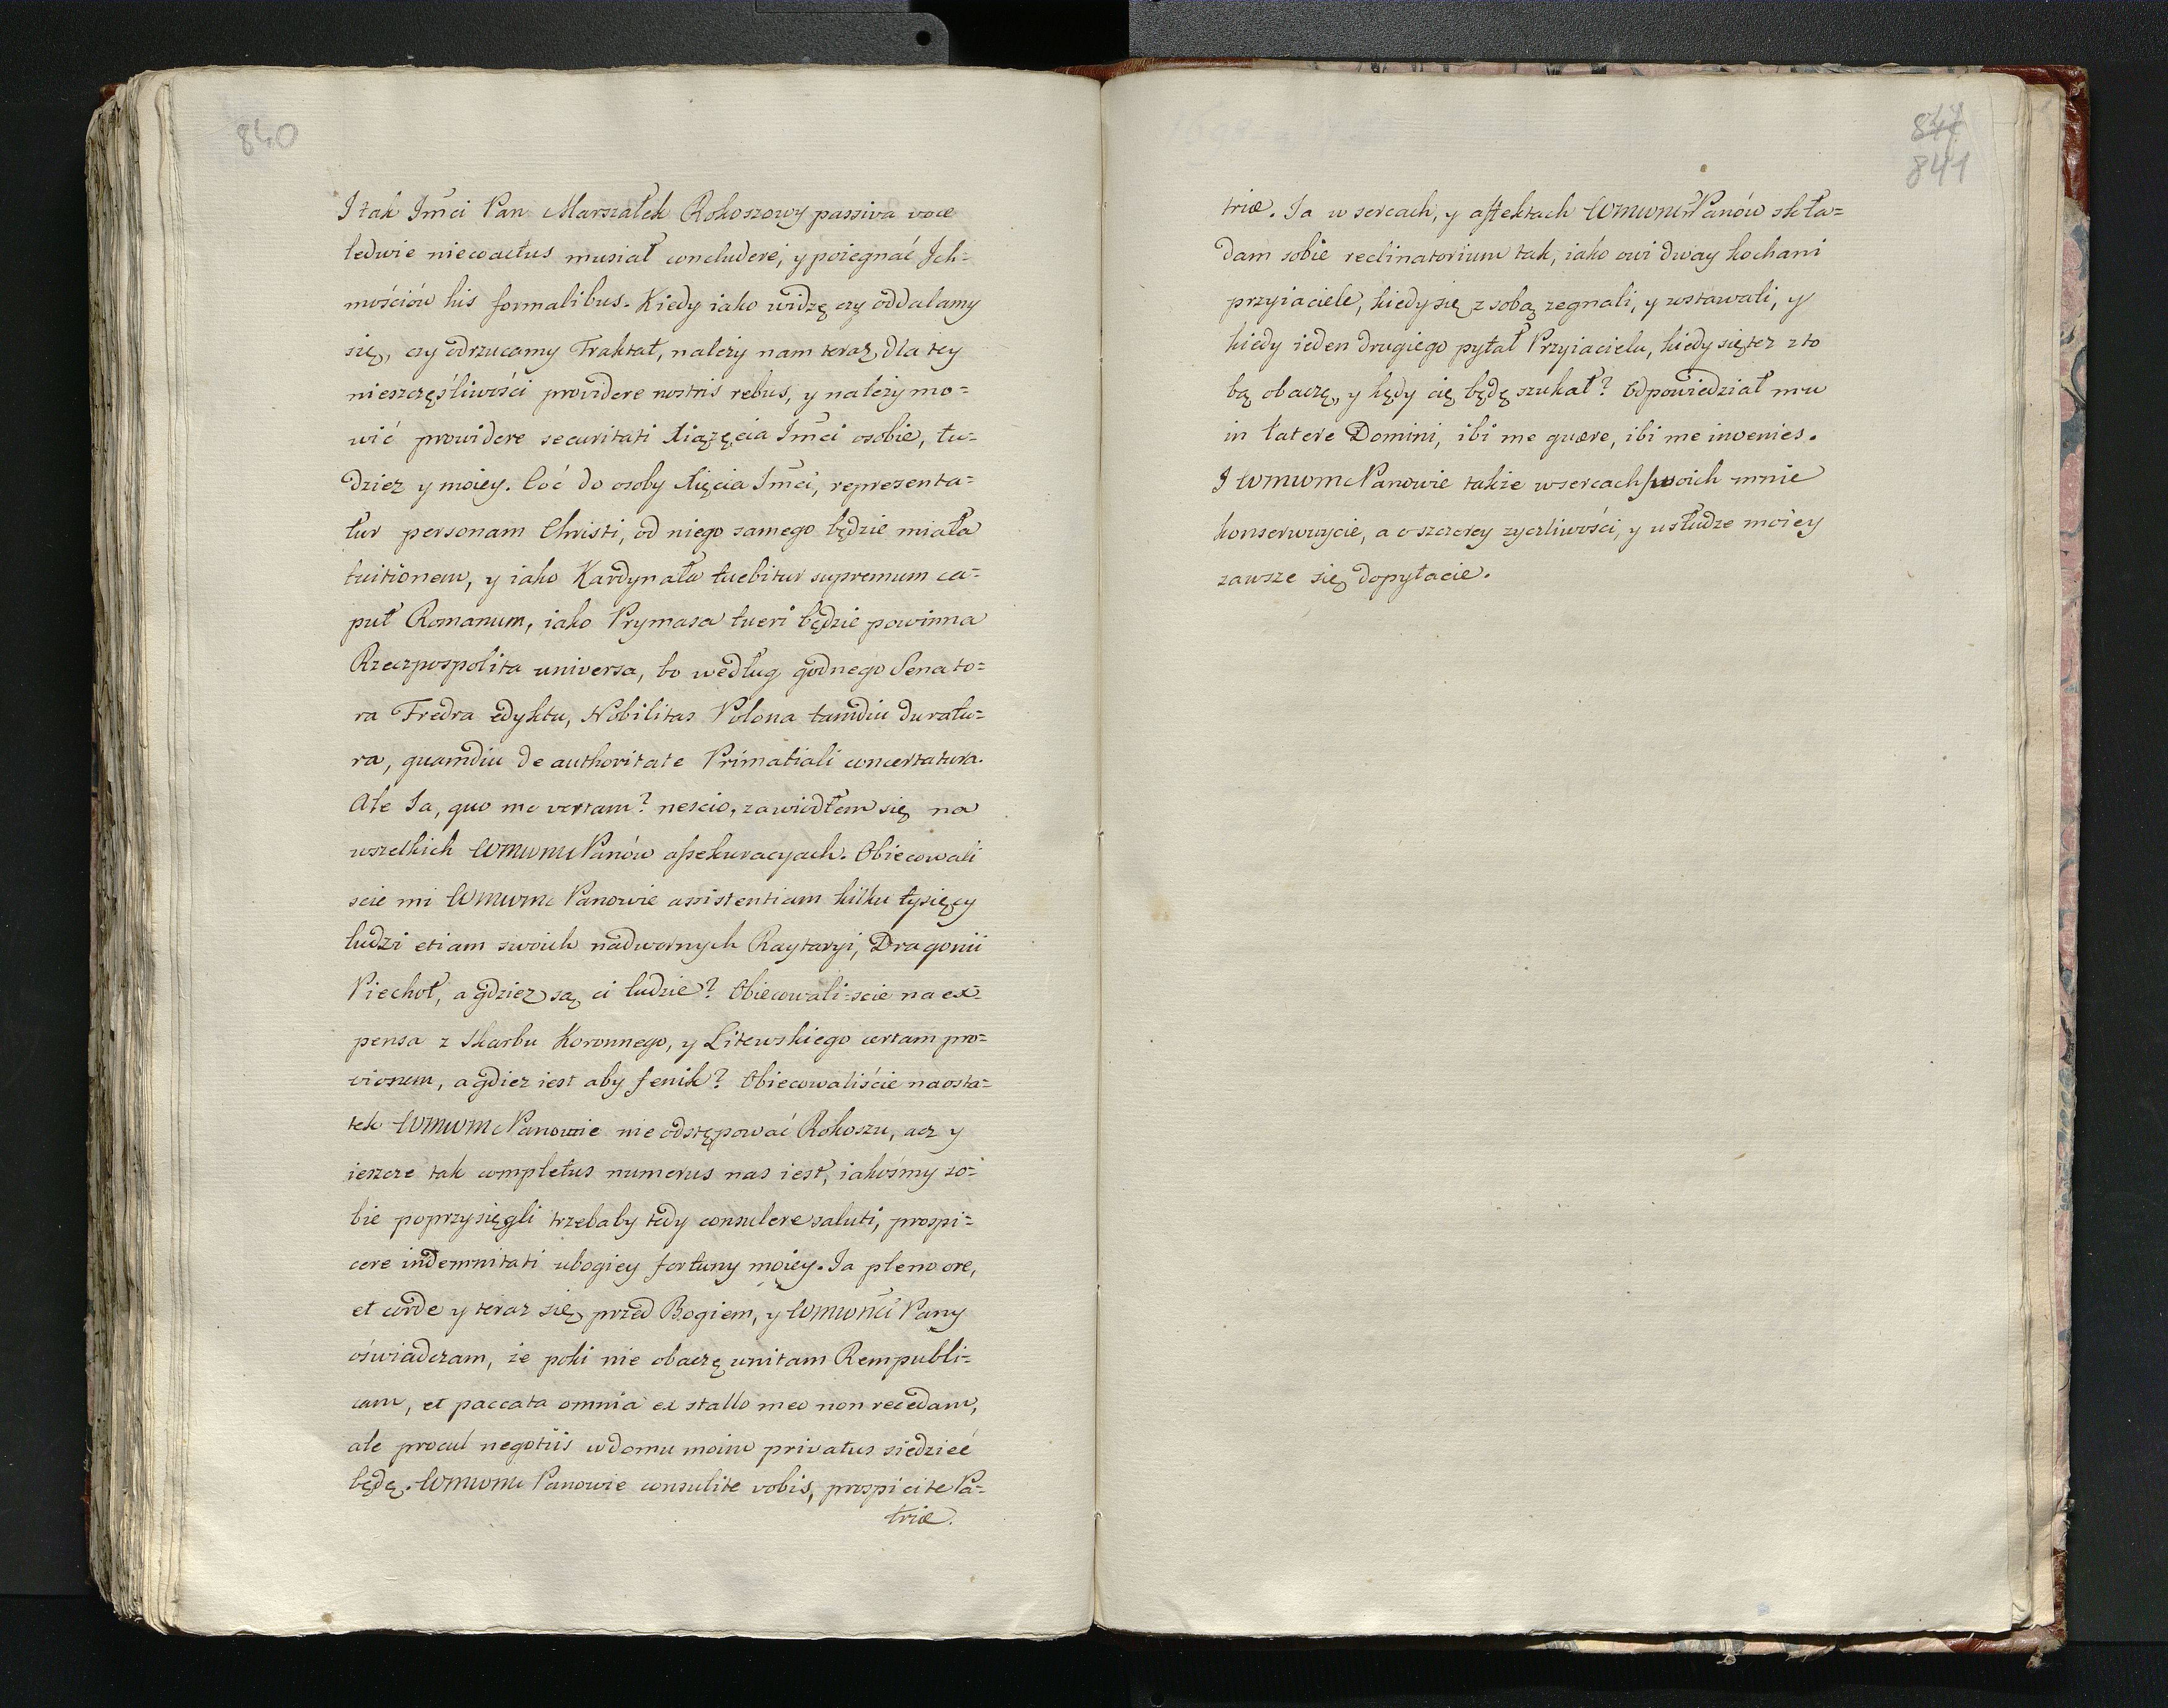 840
I tak Jmci Pan Marszałek Rokoszowy passiva voce
ledwie nie coactus musiał concludere, y pożegnać Ich=
mościów his formalibus. Kiedy iako widzę czy oddalamy
się, czy odrzucamy Traktat, należy nam teraz dla tey
nieszczęśliwości providere nostris rebus, y należy mo=
wić providere securitati Xiążęcia Jmci osobie, tu=
dziez y moiey. Coć do osoby Xięcia Jmci, reprezenta=
tur personam Christi, od niego samego będzie miała
tuitionem, y iako Kardynała tuebitur supremum ca=
put Romanum, iako Prymasa tueri będzie powinna
Rzeczpospolita universa, bo według godnego Senato=
ra Fredra edyktu, Nobilitas Polona tamdiu duratu=
ra, quamdiu de authoritate Primatiali concertatura.
Ale Ja, quo me vertam? nescio, zawiodłem się na
wszelkich WMWM Panów assekuracyach. Obiecowali
scie mi WMWMc Panowie assistentiam kilku tysięcy
ludzi etiam swoich nadwornych Raytaryi, Dragonii
Piechot, a gdziez są ci ludzie? Obiecowali=scie na ex=
pensa z Skarbu Koronnego, y Litewskiego certam pro=
vionem, a gdiez iest aby fenik? Obiecowaliście na osta=
tek WMWMc Panowie nie odstępować Rokoszu, acz y
ieszcze tak completus numerus nas iest, iakośmy so=
bie poprzysięgli trzebaby tedy consulere saluti, prospi=
cere indemnitati ubogiey fortuny moiey. Ja pleno ore,
et corde y teraz się przed Bogiem, y WMWMci Pany
oświadczam, że poki nie obaczę unitam Rempubli=
cam, et paccata omnia ex stallo meo non recedam,
ale procul negotiis w domu moim privatus siedzieć
będę. WMWMc Panowie consulite vobis, prospicite Pa=
triæ.
841
triæ. Ja w sercach, y affektach WMWM Panów skła=
dam sobie reclinatorium tak, iako owi dway kochani
przyiaciele, kiedy się z sobą zegnali, y rostawali, y
kiedy ieden drugiego pytał Przyiacielu, kiedy się tez z to
bą obaczę, y kędy cię będę szukał? Odpowiedział mu
in latere Domini, ibi me quære, ibi me invenies.
I WMWMc Panowie także w sercach swoich mnie
konserwuycie, a o szczerey zyczliwości, y usłudze moiey
zawsze się dopytacie.